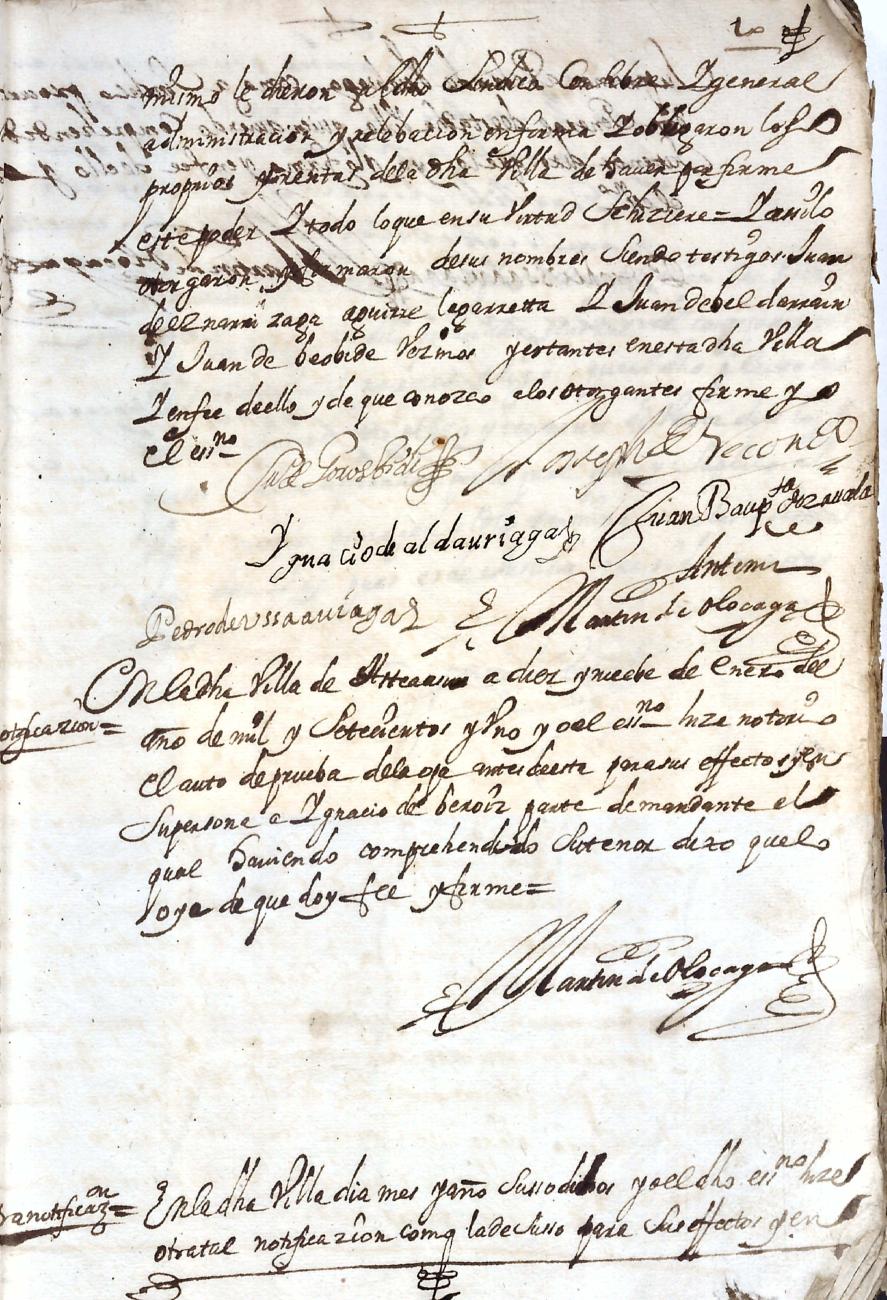 mismo le dieron al dho Sindico Con libre Y general
administracion y relebacion en forma Y obligaron los
propios y rentas de la dha Villa de hauer por firme
este poder Y todo lo que en su Virtud Se hiziere = Y assi lo
otorgaron y firmaron de sus nombres Siendo testigos Juan
de eznarrizaga aguirre legarretta Y Juan de beldarrain
Y Juan de beobide Vezinos y estantes en esta dha Villa
Y en fee de ello y de que conozco a los otorgantes firme yo
el essno
Joseph de
Juan Bapta de zauala
Ygnacio de aldauriaga
Antemi
Pedro de Ussaauiaga
Martin de Olocaga
notificazion =
En la dha Villa de Asteasu a diez y nuebe de Enero del
año de mil y Setecientos y Uno yo el essno hize notorio
el auto de prueba de la oja antes de esta para sus effectos y en
Su persona a Ygnacio de beroiz parte demandante el
qual hauiendo comprehendido Su tenor dixo que lo
oye de que doy fee y firme =
Martin de Olocaga
otra notificazon =
En la dha Villa dia mes y año Sussodichos yo el dho essno hize
otra tal notificazion como la de Susso para Sus effectos y en